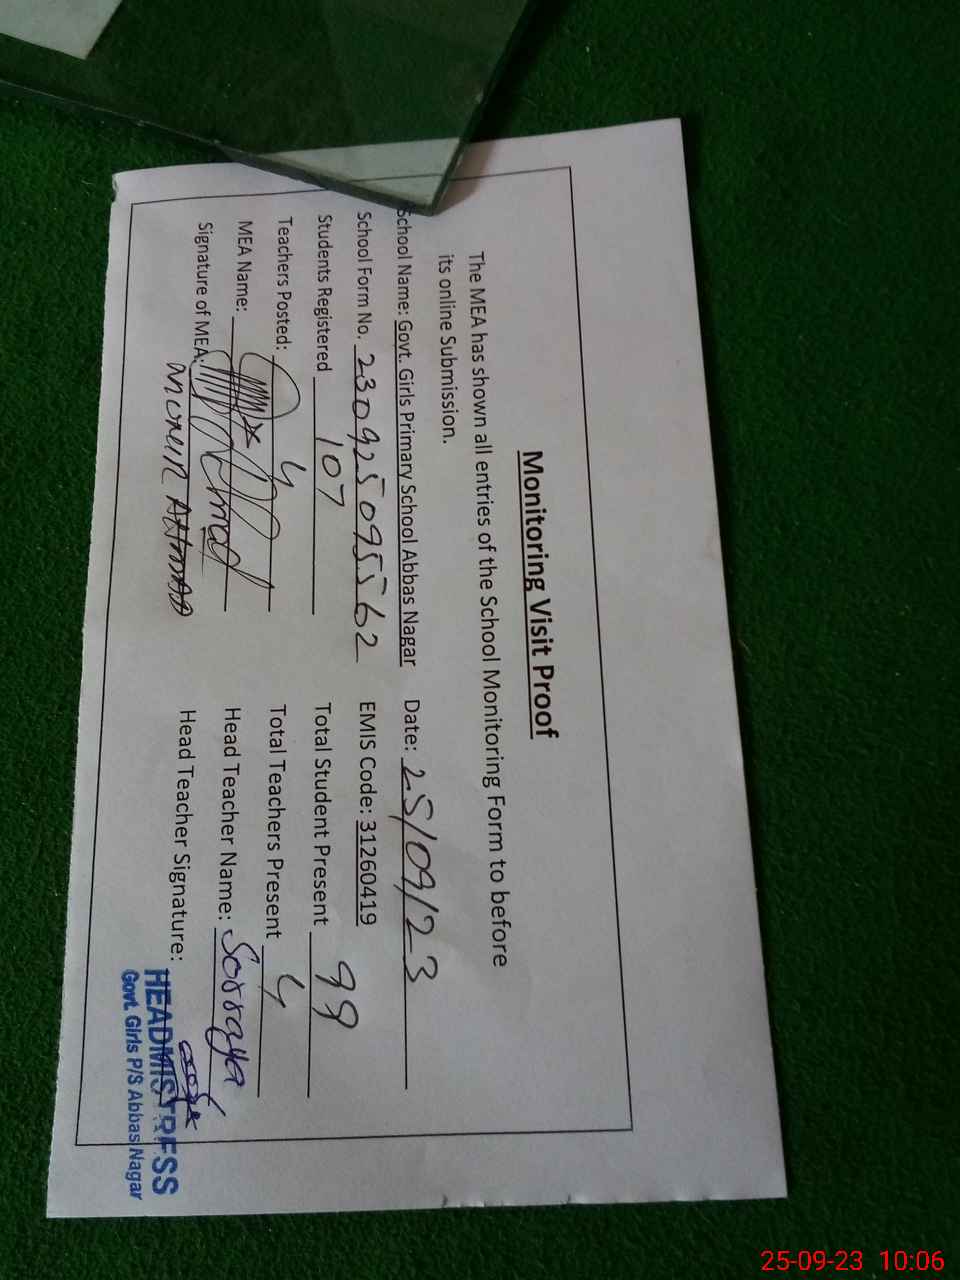 Monitoring Visit Proof
The MEA has shown all entries of the School Monitoring Form to before
its online Submission.
School Name: Govt. Girls Primary School Abbas Nagar Date: 25/09/23
School Form No. 230925095562 EMIS Code: 31260419
Students Registered 107 Total Student Present 99
Teachers Posted: 4 Total Teachers Present 4
MEA Name: Head Teacher Name:
Signature of MEA: Head Teacher Signature:
AHMAD
HEADMISTRESS
Govt. Girls P/S Abbas Nagar
25-09-23 10:06